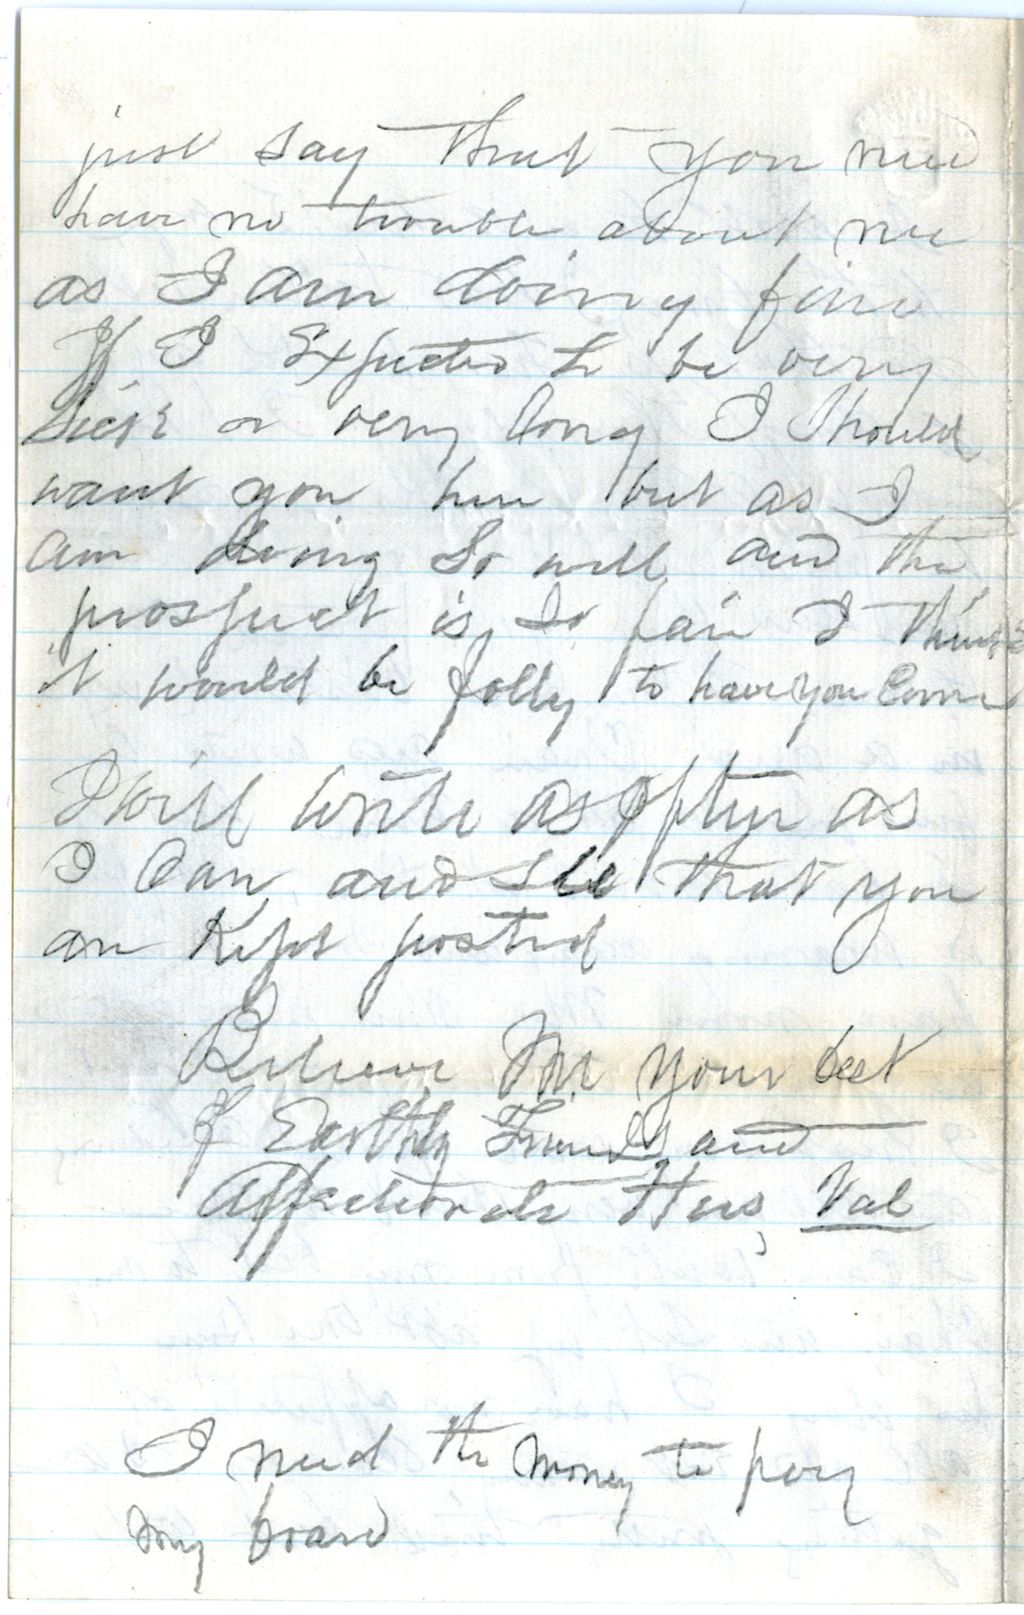 just say that you need
have no trouble about me
as I am doing fine
If I Expected to be very
Sick or very long I Should
want you here but as I
am doing So well and the
prospect is So fair I think
it would be folly to have you Come
I will write as often as
I Can and see that you
are Kept posted
Believe Me your best
of Earthly Friends and
Affectionate Hus, Val
I need the money to pay
my board